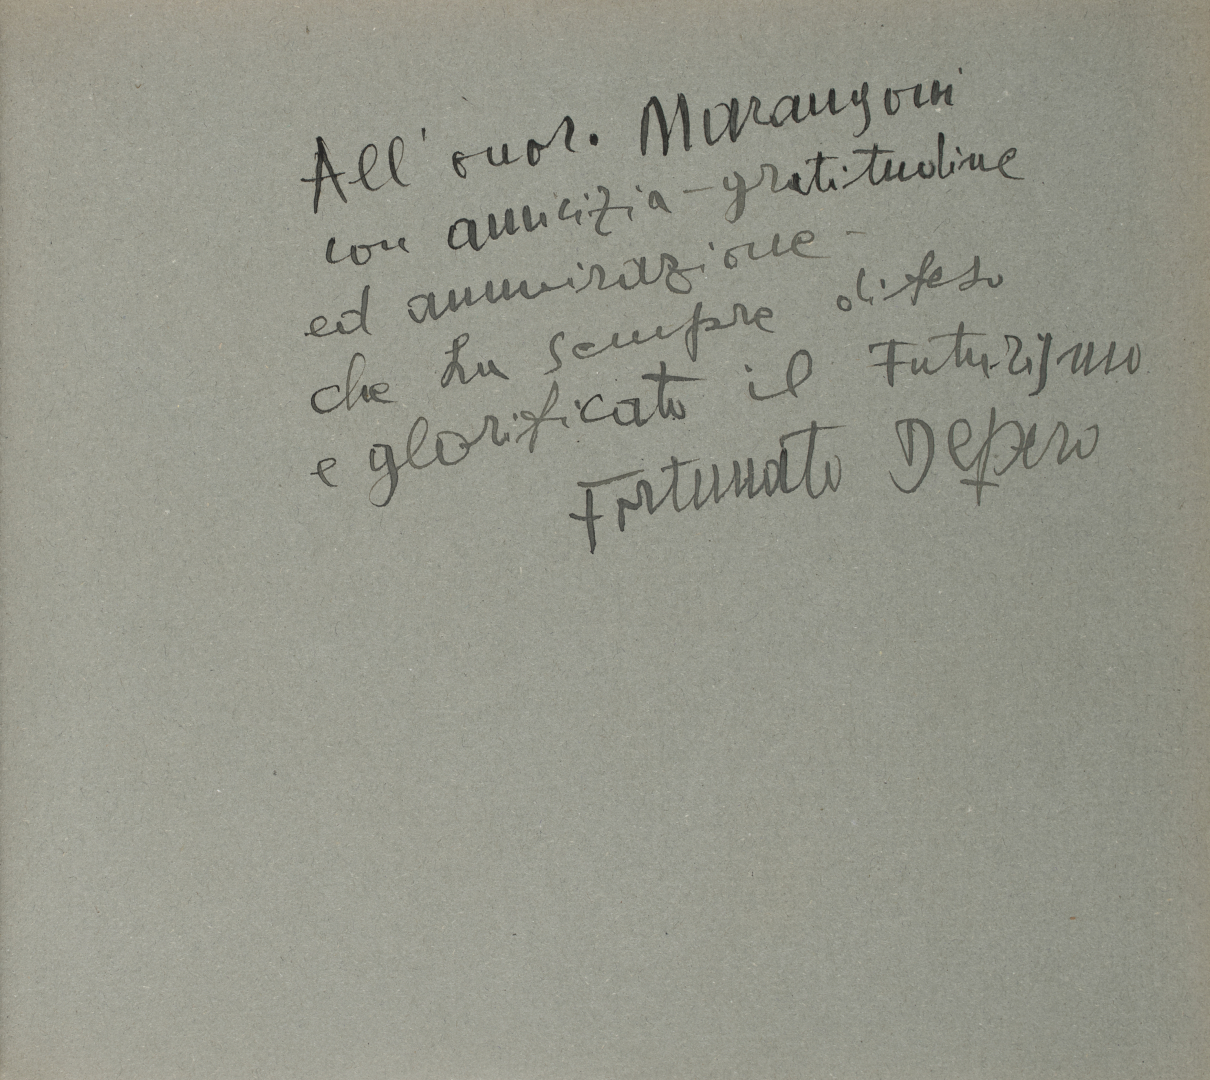 All'onor. Marangoni
con amicizia - gratitudine
ed ammirazione -
che ha sempre difeso
e glorificato il Futurismo
Fortunato Depero